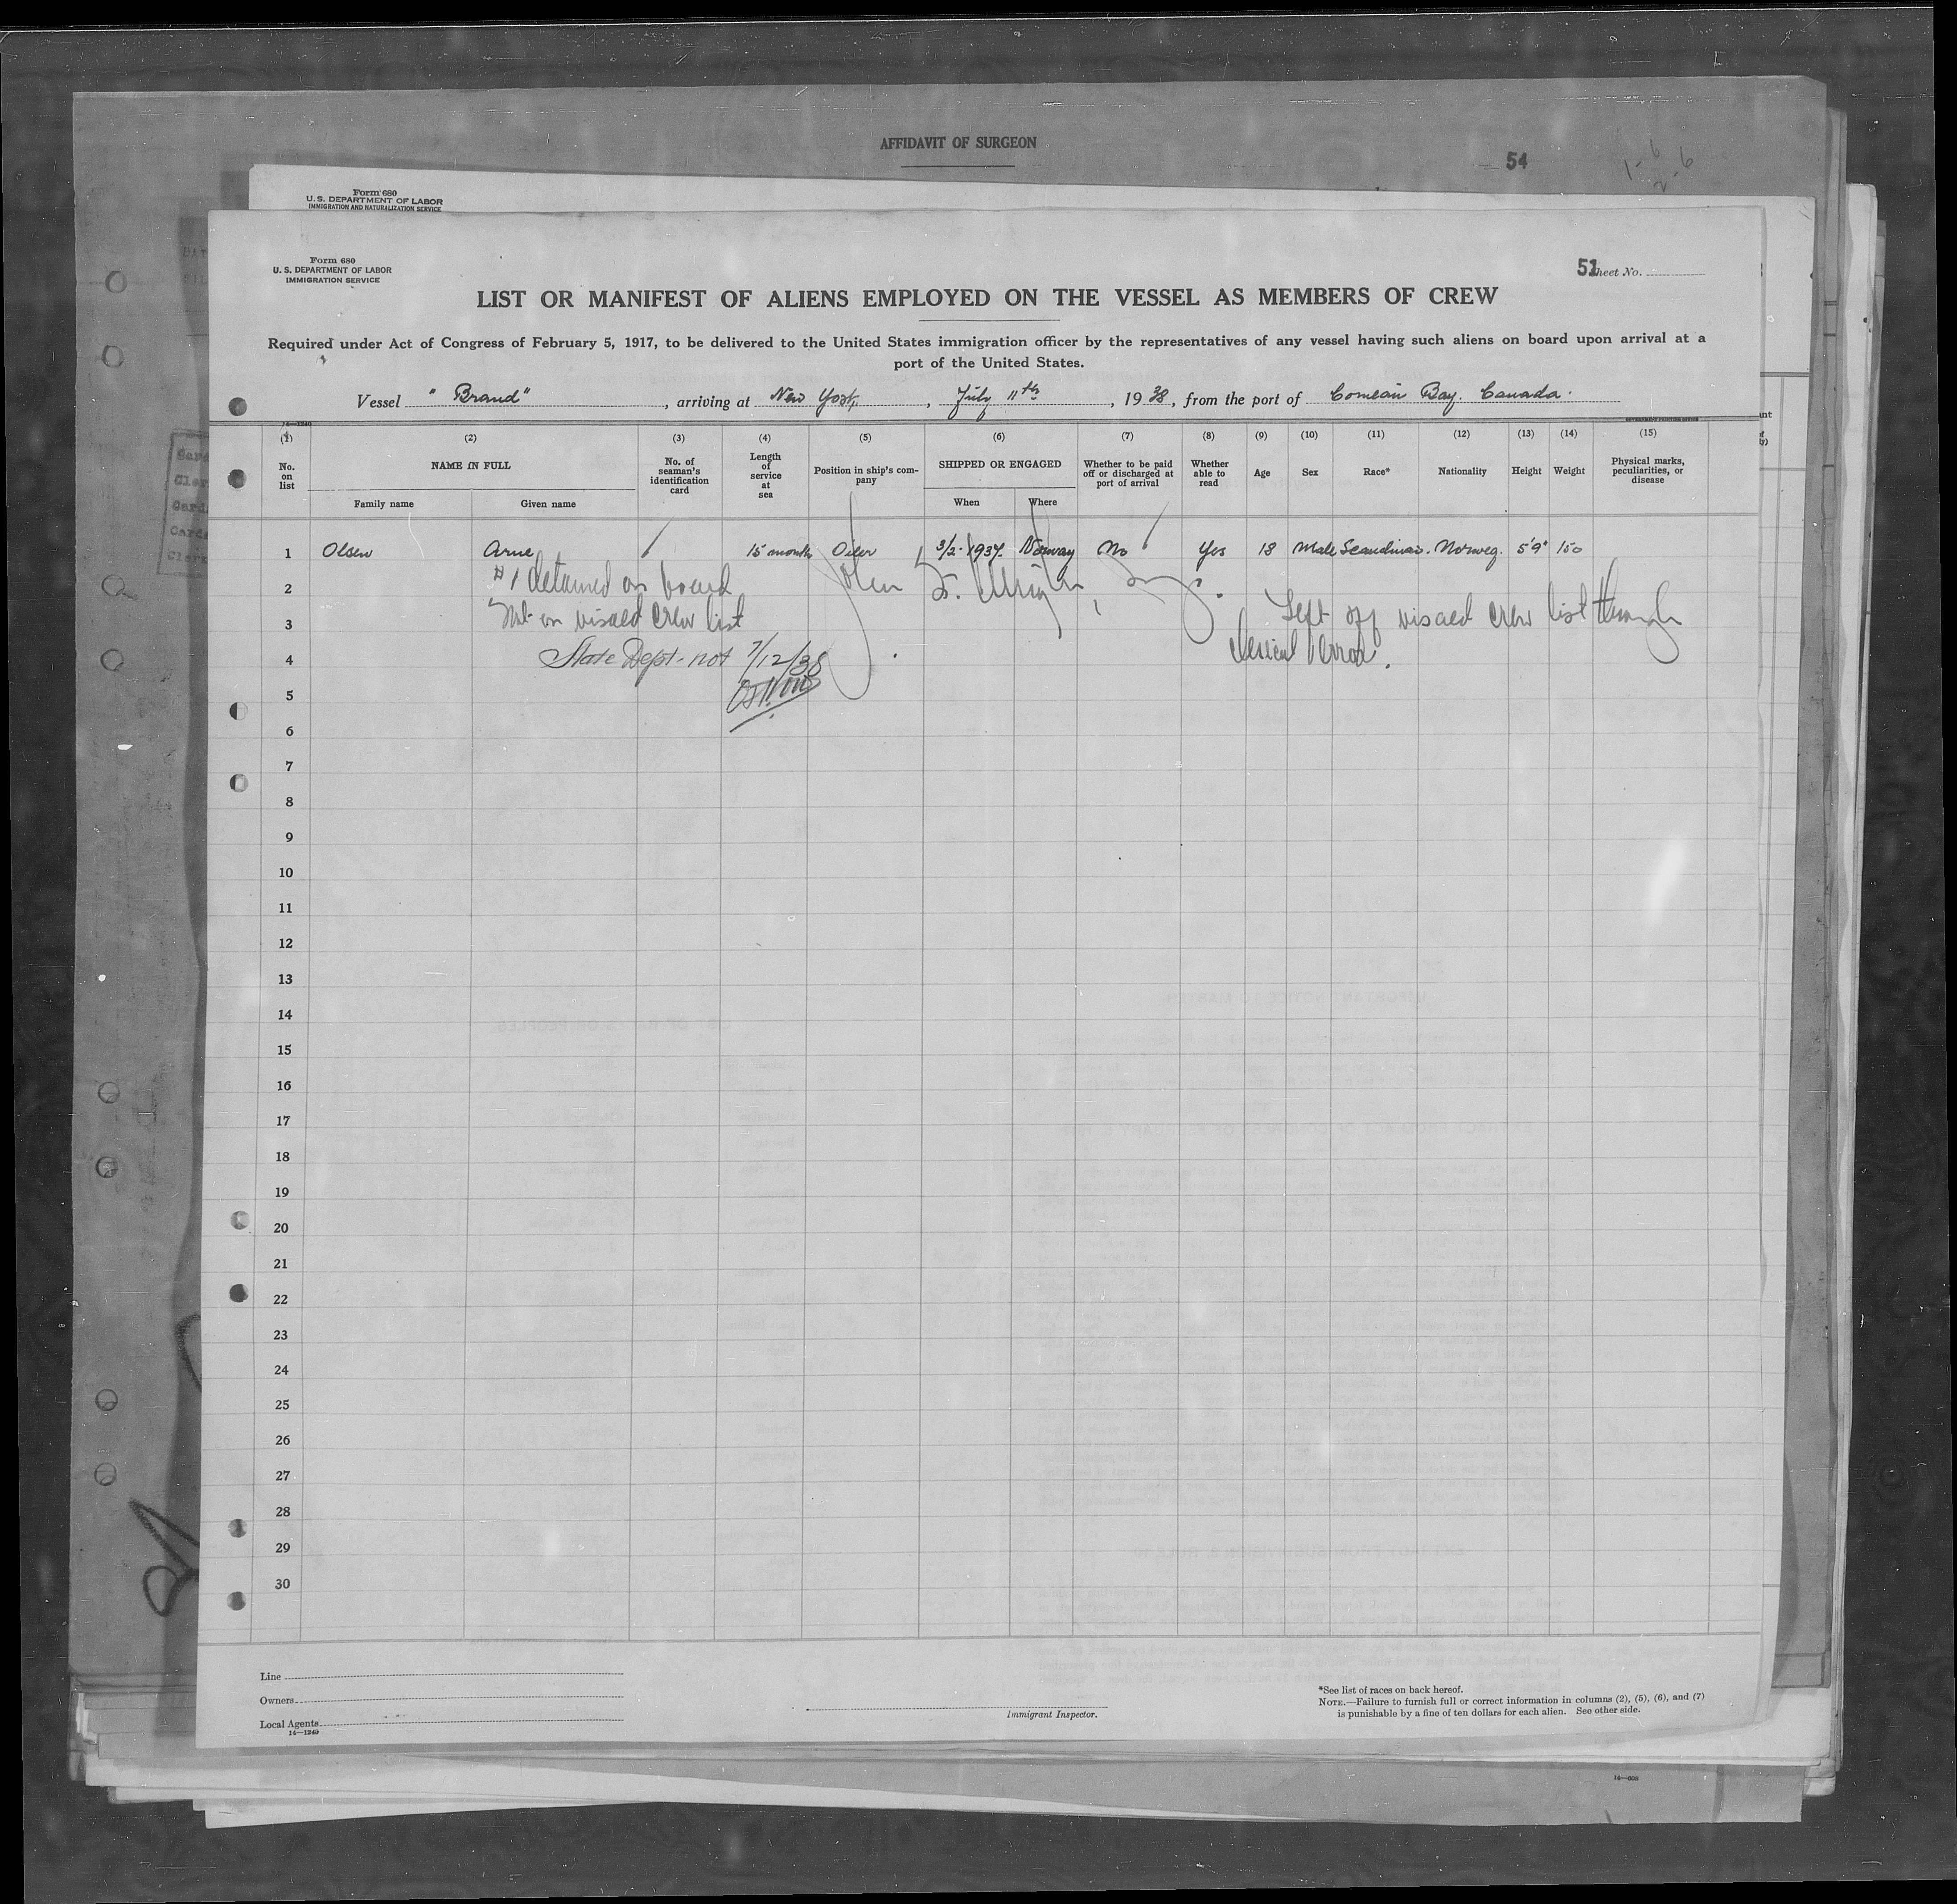 AFFIDAVIT OF SURGEON
54
1-6
2-6
Form 680
U. S. DEPARTMENT OF LABOR
IMMIGRATION AND NATURALIZATION SERVICE
Form 680
U. S. DEPARTMENT OF LABOR
IMMIGRATION SERVICE
51
Sheet No.
LIST OR MANIFEST OF ALIENS EMPLOYED ON THE VESSEL AS MEMBERS OF CREW
Required under Act of Congress of February 5, 1917, to be delivered to the United States immigration officer by the representatives of any vessel having such aliens on board upon arrival at a
port of the United States.
Vessel "Brand", arriving at New York, July 11th, 1938, from the port of Comeau Bay. Canada.
14—1240
(1) (2) (3) (4) (5) (6) (7) (8) (9) (10) (11) (12) (13) (14) (15)
No. on list
NAME IN FULL
Family name Given name
No. of seaman's identification card
Length of service at sea
Position in ship's company
SHIPPED OR ENGAGED
When Where
Whether to be paid off or discharged at port of arrival
Whether able to read
Age
Sex
Race*
Nationality
Height
Weight
Physical marks, peculiarities, or disease
1 Olsen Arne 15 months Oiler 3/2-1937. Norway No Yes 18 Male Scandinav. Norweg. 5'9" 150
2 #1 detained on board
3 Not on visaed crew list
Left off visaed crew list through
clerical error.
4 State Dept - not 7/12/38
5
6
7
8
9
10
11
12
13
14
15
16
17
18
19
20
21
22
23
24
25
26
27
28
29
30
Line
Owners
Local Agents
14—1240
Immigrant Inspector.
*See list of races on back hereof.
NOTE.—Failure to furnish full or correct information in columns (2), (5), (6), and (7)
is punishable by a fine of ten dollars for each alien. See other side.